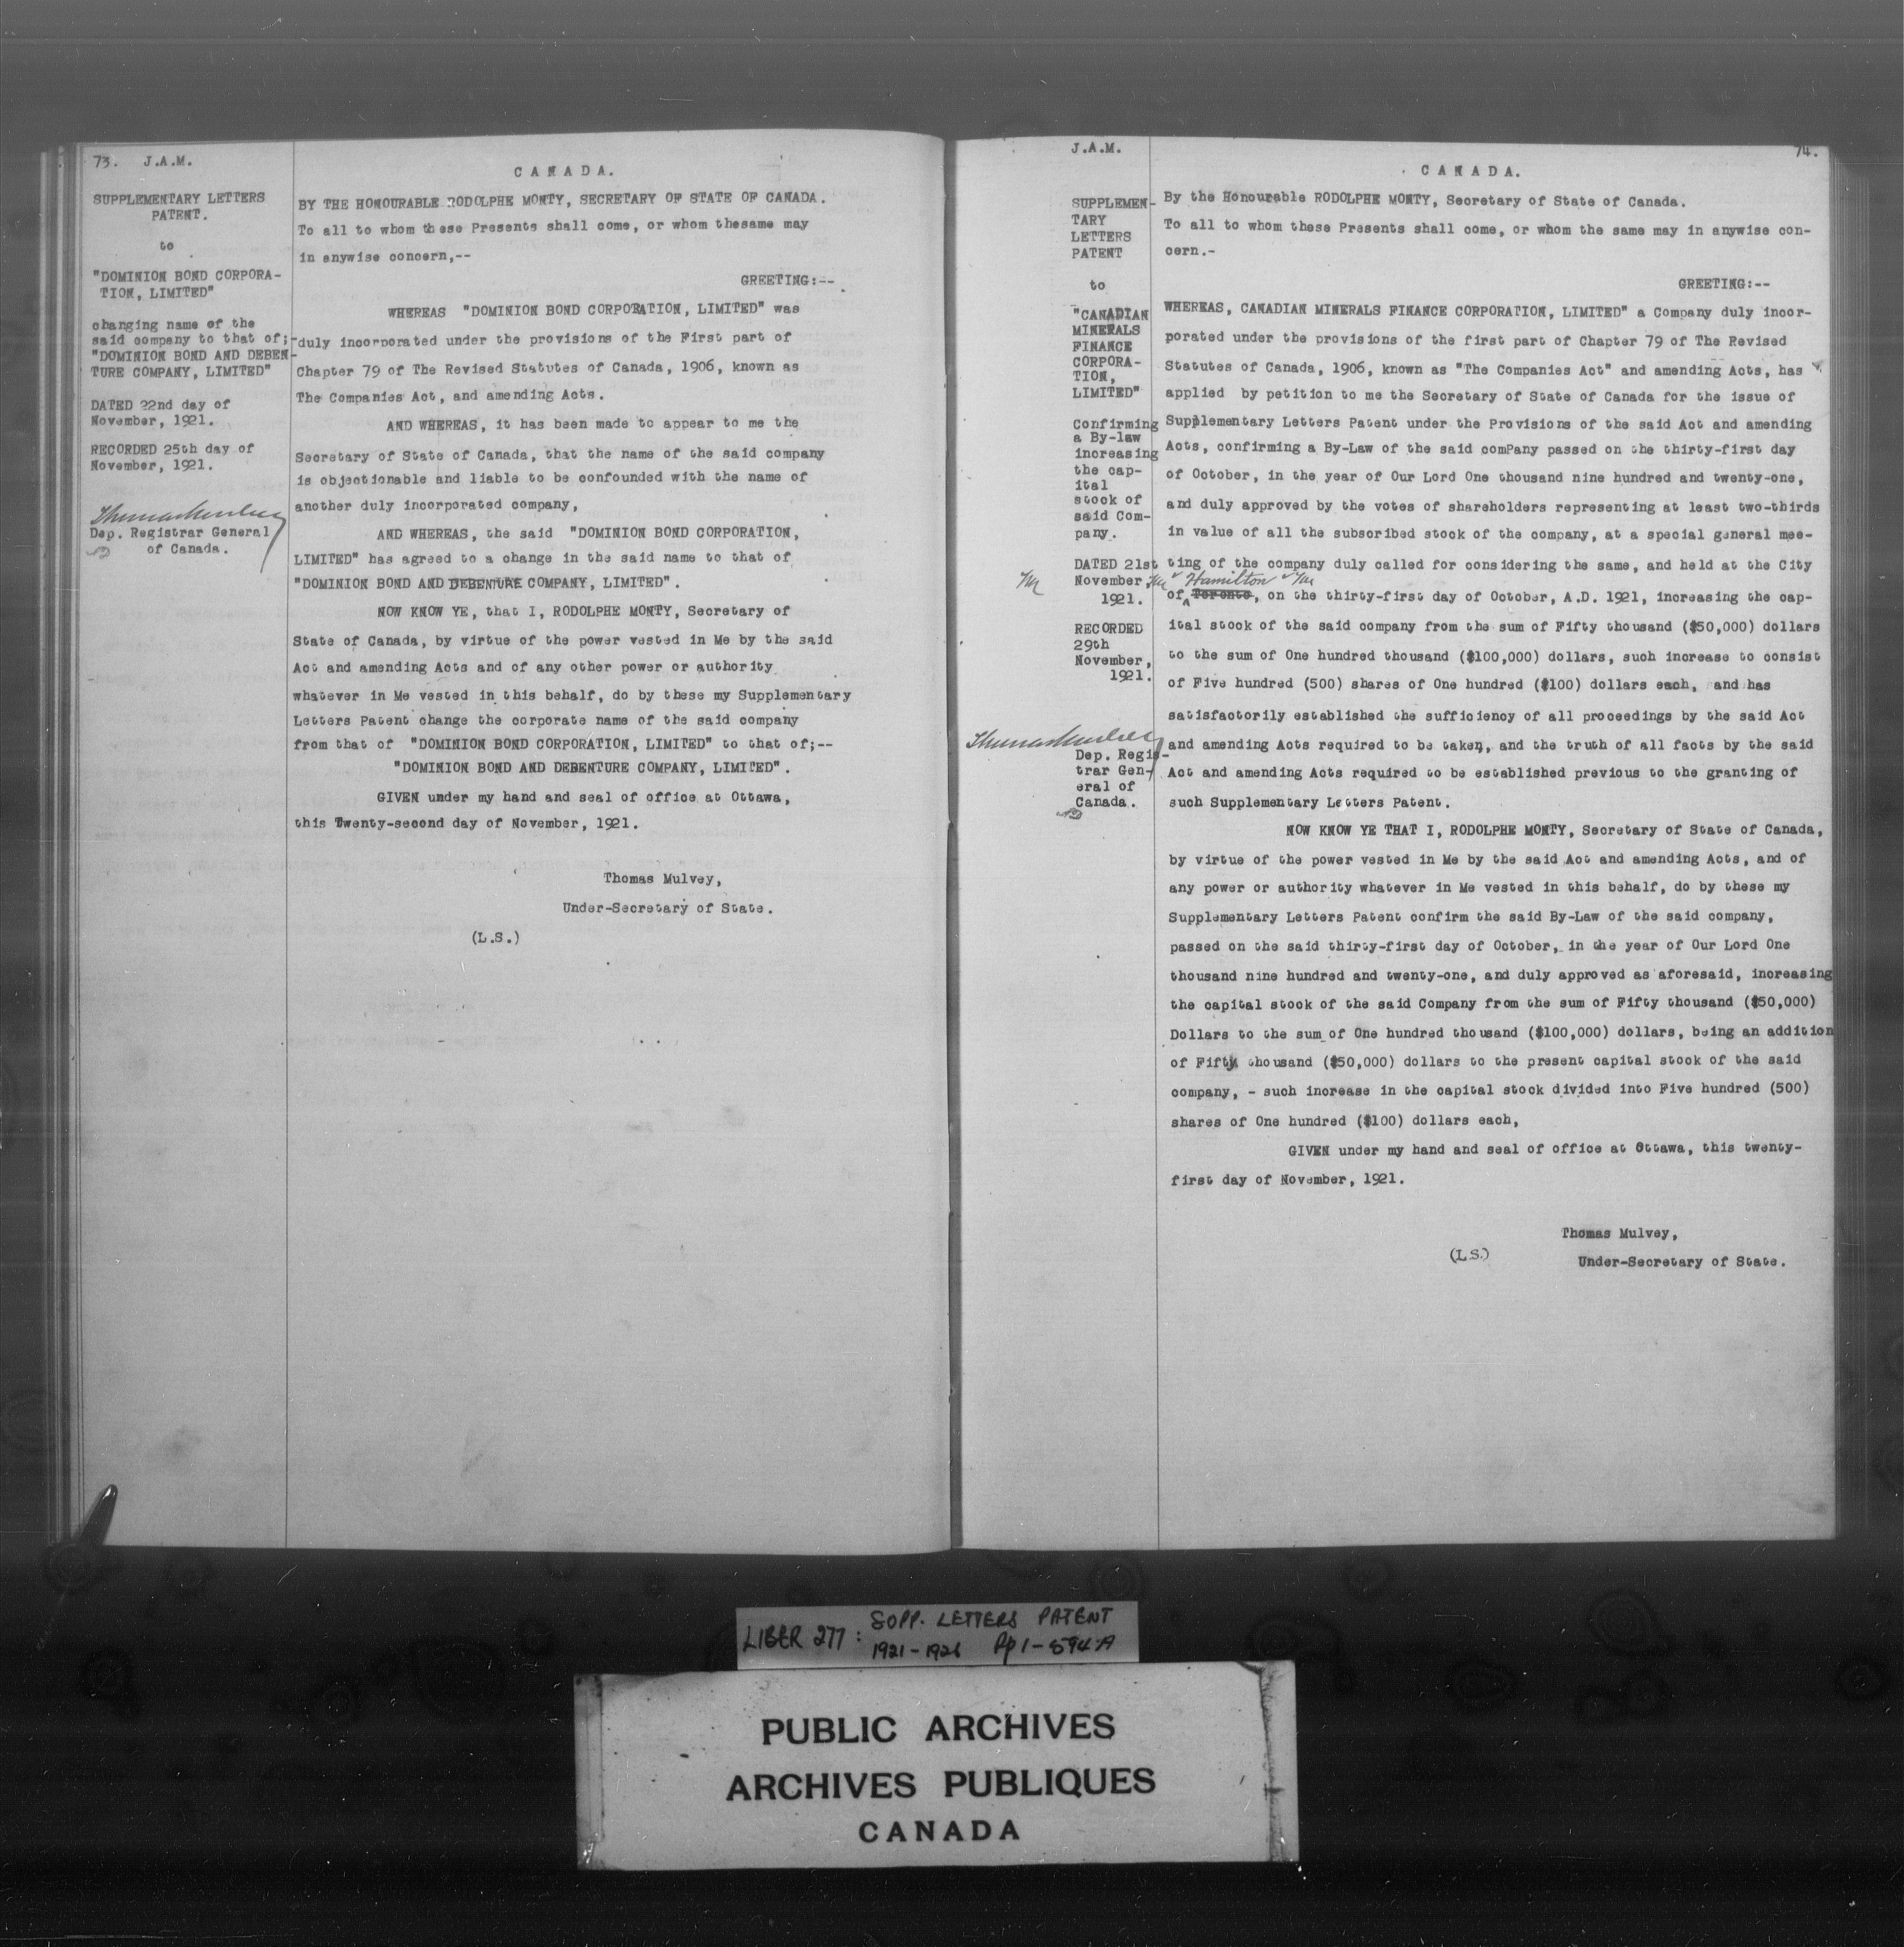 73. J.A.M.
SUPPLEMENTARY LETTERS
PATENT.
to
"DOMINION BOND CORPORA-
TION, LIMITED"
changing name of the
said company to that of;-
"DOMINION BOND AND DEBEN-
TURE COMPANY, LIMITED"
DATED 22nd day of
November, 1921.
RECORDED 25th day of
November, 1921.
Thomas Mulvey
Dep. Registrar General
of Canada.
CANADA.
BY THE HONOURABLE RODOLPHE MONTY, SECRETARY OF STATE OF CANADA.
To all to whom these Presents shall come, or whom thesame may
in anywise concern,--
GREETING:--
WHEREAS "DOMINION BOND CORPORATION, LIMITED" was
duly incorporated under the provisions of the First part of
Chapter 79 of The Revised Statutes of Canada, 1906, known as
The Companies Act, and amending Acts.
AND WHEREAS, it has been made to appear to me the
Secretary of State of Canada, that the name of the said company
is objectionable and liable to be confounded with the name of
another duly incorporated company,
AND WHEREAS, the said "DOMINION BOND CORPORATION,
LIMITED" has agreed to a change in the said name to that of
"DOMINION BOND AND DEBENTURE COMPANY, LIMITED".
NOW KNOW YE, that I, RODOLPHE MONTY, Secretary of
State of Canada, by virtue of the power vested in Me by the said
Act and amending Acts and of any other power or authority
whatever in Me vested in this behalf, do by these my Supplementary
Letters Patent change the corporate name of the said company
from that of "DOMINION BOND CORPORATION, LIMITED" to that of;--
"DOMINION BOND AND DEBENTURE COMPANY, LIMITED".
GIVEN under my hand and seal of office at Ottawa,
this Twenty-second day of November, 1921.
Thomas Mulvey,
Under-Secretary of State.
(L.S.)
J.A.M.
74.
SUPPLEMEN-
TARY
LETTERS
PATENT
to
"CANADIAN
MINERALS
FINANCE
CORPORA-
TION,
LIMITED"
Confirming
a By-law
increasing
the cap-
ital
stock of
said Com-
pany.
DATED 21st
November,
1921.
RECORDED
29th
November,
1921.
Thomas Mulvey
Dep. Regis-
trar Gen-
eral of
Canada.
CANADA.
By the Honourable RODOLPHE MONTY, Secretary of State of Canada.
To all to whom these Presents shall come, or whom the same may in anywise con-
cern.-
GREETING:--
WHEREAS, CANADIAN MINERALS FINANCE CORPORATION, LIMITED" a Company duly incor-
porated under the provisions of the first part of Chapter 79 of The Revised
Statutes of Canada, 1906, known as "The Companies Act" and amending Acts, has
applied by petition to me the Secretary of State of Canada for the issue of
Supplementary Letters Patent under the Provisions of the said Act and amending
Acts, confirming a By-Law of the said comPany passed on the thirty-first day
of October, in the year of Our Lord One thousand nine hundred and twenty-one,
and duly approved by the votes of shareholders representing at least two-thirds
in value of all the subscribed stock of the company, at a special general mee-
ting of the company duly called for considering the same, and held at the City
Hamilton
of Toronto, on the thirty-first day of October, A.D. 1921, increasing the cap-
ital stock of the said company from the sum of Fifty thousand ($50,000) dollars
to the sum of One hundred thousand ($100,000) dollars, such increase to consist
of Five hundred (500) shares of One hundred ($100) dollars each, and has
satisfactorily established the sufficiency of all proceedings by the said Act
and amending Acts required to be taken, and the truth of all facts by the said
Act and amending Acts required to be established previous to the granting of
such Supplementary Letters Patent.
NOW KNOW YE THAT I, RODOLPHE MONTY, Secretary of State of Canada,
by virtue of the power vested in Me by the said Act and amending Acts, and of
any power or authority whatever in Me vested in this behalf, do by these my
Supplementary Letters Patent confirm the said By-Law of the said company,
passed on the said thirty-first day of October, in the year of Our Lord One
thousand nine hundred and twenty-one, and duly approved as aforesaid, increasing
the capital stock of the said Company from the sum of Fifty thousand ($50,000)
Dollars to the sum of One hundred thousand ($100,000) dollars, being an addition
of Fifty thousand ($50,000) dollars to the present capital stock of the said
company, - such increase in the capital stock divided into Five hundred (500)
shares of One hundred ($100) dollars each,
GIVEN under my hand and seal of office at Ottawa, this twenty-
first day of November, 1921.
Thomas Mulvey,
(L.S.)
Under-Secretary of State.
LIBER 277: SUPP. LETTERS PATENT
1921-1926 Pp 1-594A
PUBLIC ARCHIVES
ARCHIVES PUBLIQUES
CANADA